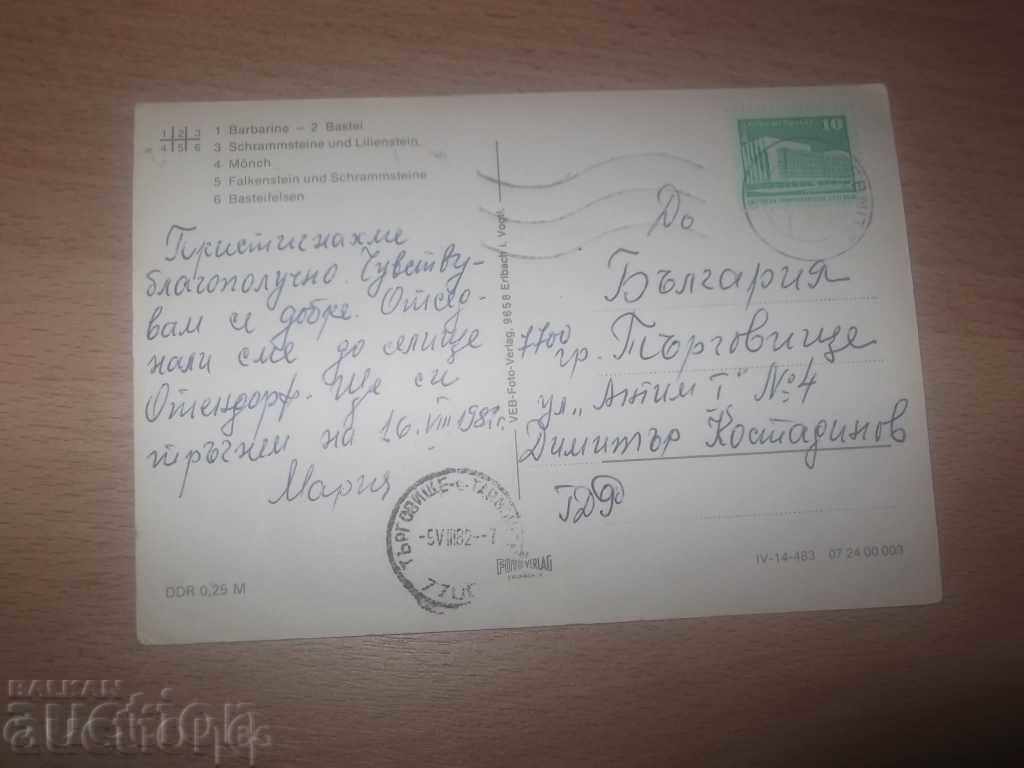 1 2 3
4 5 6
1 Barbarine – 2 Bastei
3 Schrammsteine und Lilienstein
4 Mönch
5 Falkenstein und Schrammsteine
6 Basteifelsen
Пристигнахме
благополучно. Чувству-
вам се добре. Отсед-
нали сме до селище
Отендорф. Ще си
тръгнем на 16.VIII 1982г.
Мария
DDR 0,25 M
VEB-Foto-Verlag, 9658 Erlbach i. Vogtl.
10
До
България
7700 гр. Търговище
ул. „Антим I" №4
Димитър Костадинов
ГДР
ТЪРГОВИЩЕ
-5VIII82--7
FOTO VERLAG
IV-14-483 07 24 00 003
BALKAN
auction